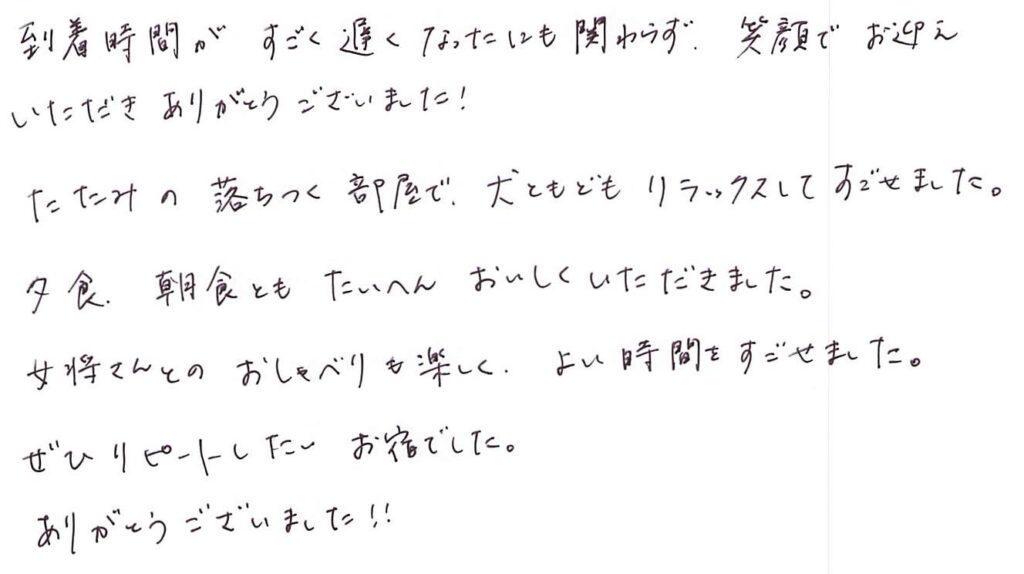 到着時間が すごく遅くなったにも関わらず、笑顔でお迎え
いただきありがとうございました!
たたみの 落ちつく部屋で、犬ともども リラックスしてすごせました。
夕食、朝食とも たいへん おいしくいただきました。
女将さんとの おしゃべりも楽しく、よい時間をすごせました。
ぜひリピートしたい お宿でした。
ありがとうございました!!